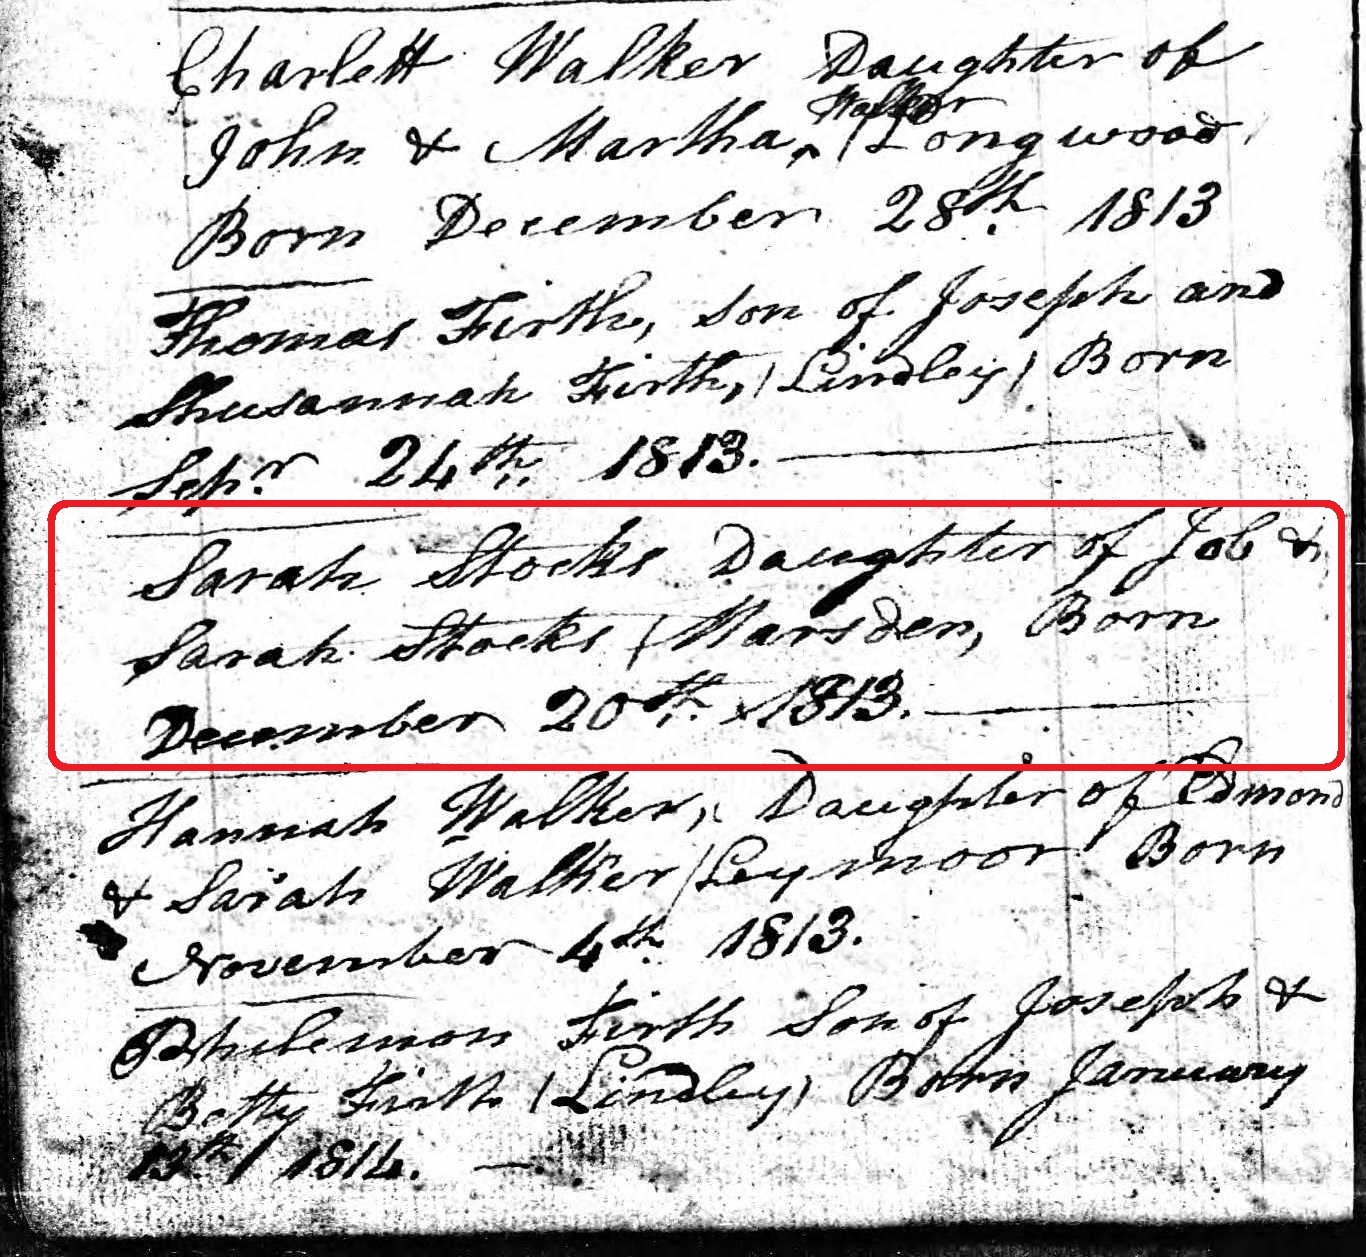 Charlett Walker Daughter of
John & Martha, Walker (Longwood,
Born December 28th. 1813
Thomas Firth, son of Joseph and
Shusannah Firth, (Lindley) Born
Sepr. 24th. 1813.
Sarah Stocks Daughter of Job &
Sarah Stocks (Marsden, Born
December 20th. 1813.
Hannah Walker, Daughter of Edmond
& Sarah Walker (Leymoor Born
November 4th. 1813.
Philemon Firth Son of Joseph &
Betty Firth (Lindley) Born January
13th 1814.